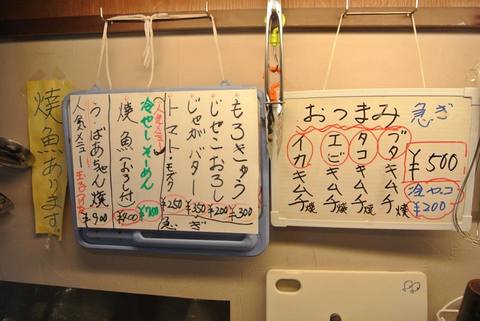 焼魚あります。
もろきゅう ¥300
じゃこおろし ¥200
じゃがバター ¥350
トマト ¥250
急ぎ
人気メニュー
冷やしそーめん ¥700
焼魚(おろし付)
うばあちゃん焼 ¥900
人気メニュー
おつまみ 急ぎ
ブタキムチ焼
タコキムチ焼
エビキムチ焼
イカキムチ焼
¥500
冷ヤッコ
¥200